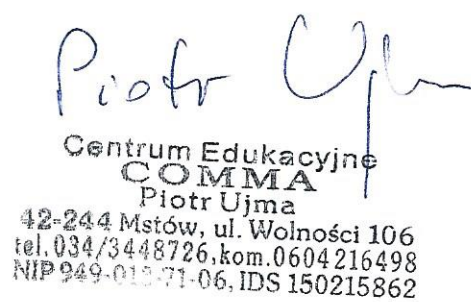 Piotr Ujma
Centrum Edukacyjne
COMMA
Piotr Ujma
42-244 Mstów, ul. Wolności 106
tel. 034/3448726, kom. 0604216498
NIP 949-013-71-06, IDS 150215862